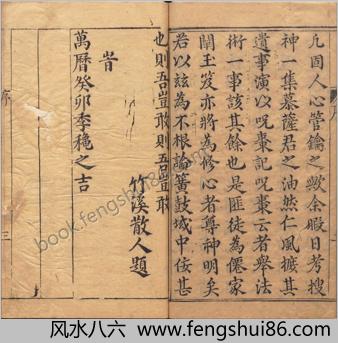 凡固人心管鑰之斁余暇日考搜
神一集慕薩君之油然仁風摭其
遺事演以呪棗記呪棗云者舉法
術一事該其餘也是匪徒為僊家
閫玉笈亦將為修心者尊神明矣
若以玆為不根論簧鼓域中佞甚
也則吾豈敢則吾豈敢
旹
萬曆癸卯季穐之吉
竹溪散人題
序
三
book.fengshui86.com
风水八六 www.fengshui86.com